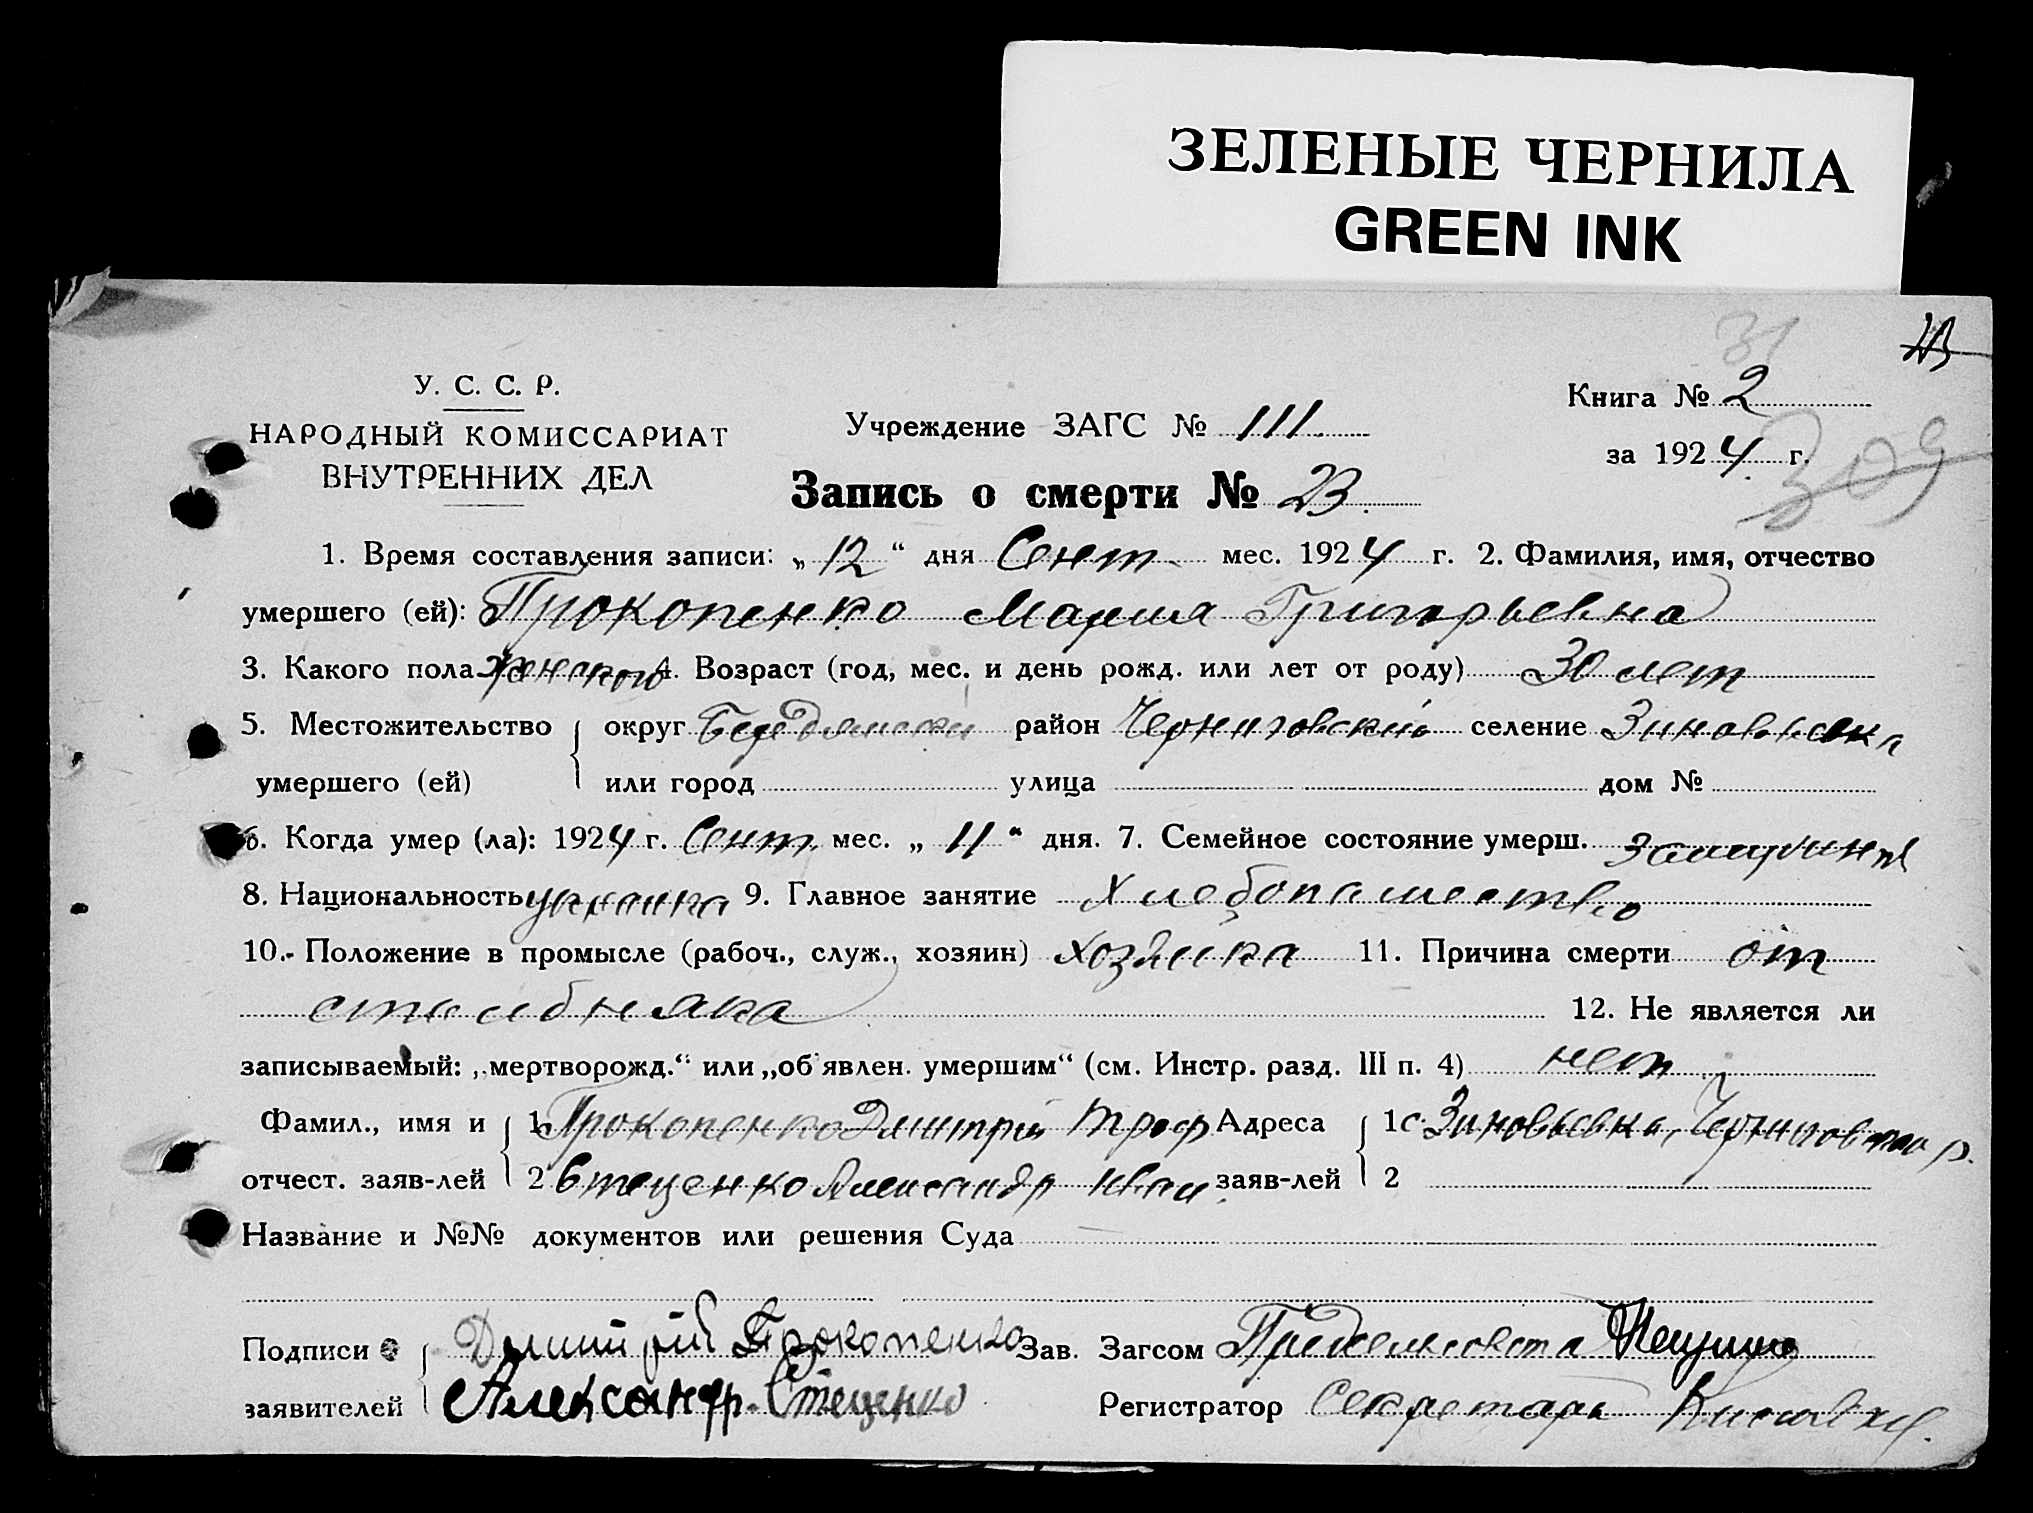 ЗЕЛЕНЫЕ ЧЕРНИЛА
GREEN INK
31 23
У. С. С. Р.
НАРОДНЫЙ КОМИССАРИАТ
ВНУТРЕННИХ ДЕЛ
Учреждение ЗАГС № 111
Книга № 2
за 1924 г.
309
Запись о смерти № 23
1. Время составления записи: „12“ дня Сент. мес. 1924 г. 2. Фамилия, имя, отчество
умершего (ей): Прокопенко Мария Григорьевна
3. Какого пола женского 4. Возраст (год, мес. и день рожд. или лет от роду) 30 лет
5. Местожительство округ Бердянский район Черниговский селение Зиновьевка
умершего (ей) или город улица дом №
6. Когда умер (ла): 1924 г. Сент. мес. „11“ дня. 7. Семейное состояние умерш. замужняя
8. Национальность украинка 9. Главное занятие Хлебопашество
10. Положение в промысле (рабоч., служ., хозяин) хозяйка 11. Причина смерти от
столбняка 12. Не является ли
записываемый: „мертворожд.“ или „об'явлен. умершим“ (см. Инстр. разд. III п. 4) нет
Фамил., имя и 1 Прокопенко Дмитрий Троф Адреса 1 с. Зиновьевка, Черниговского р.
отчест. заяв-лей 2 Стеценко Александр Иван. заяв-лей 2
Название и №№ документов или решения Суда
Подписи Дмитрій Прокопенко Зав. Загсом Предсельсовета
заявителей Александр. Стеценко Регистратор Секретарь